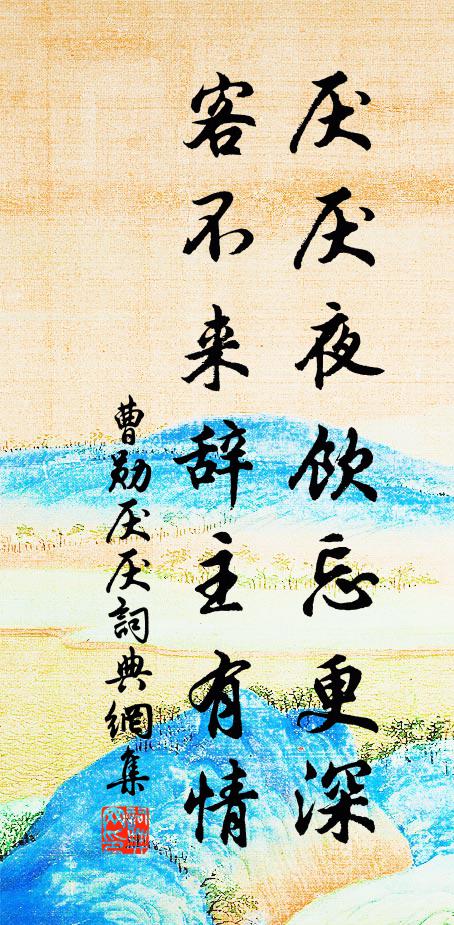 厌厌夜饮忘更深
客不来辞主有情
曹勋厌厌詞典網集